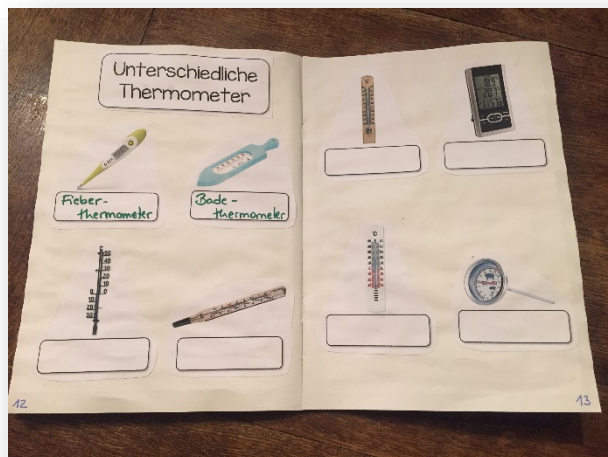 Unterschiedliche
Thermometer
Fieber-
thermometer
Bade-
thermometer
12
13